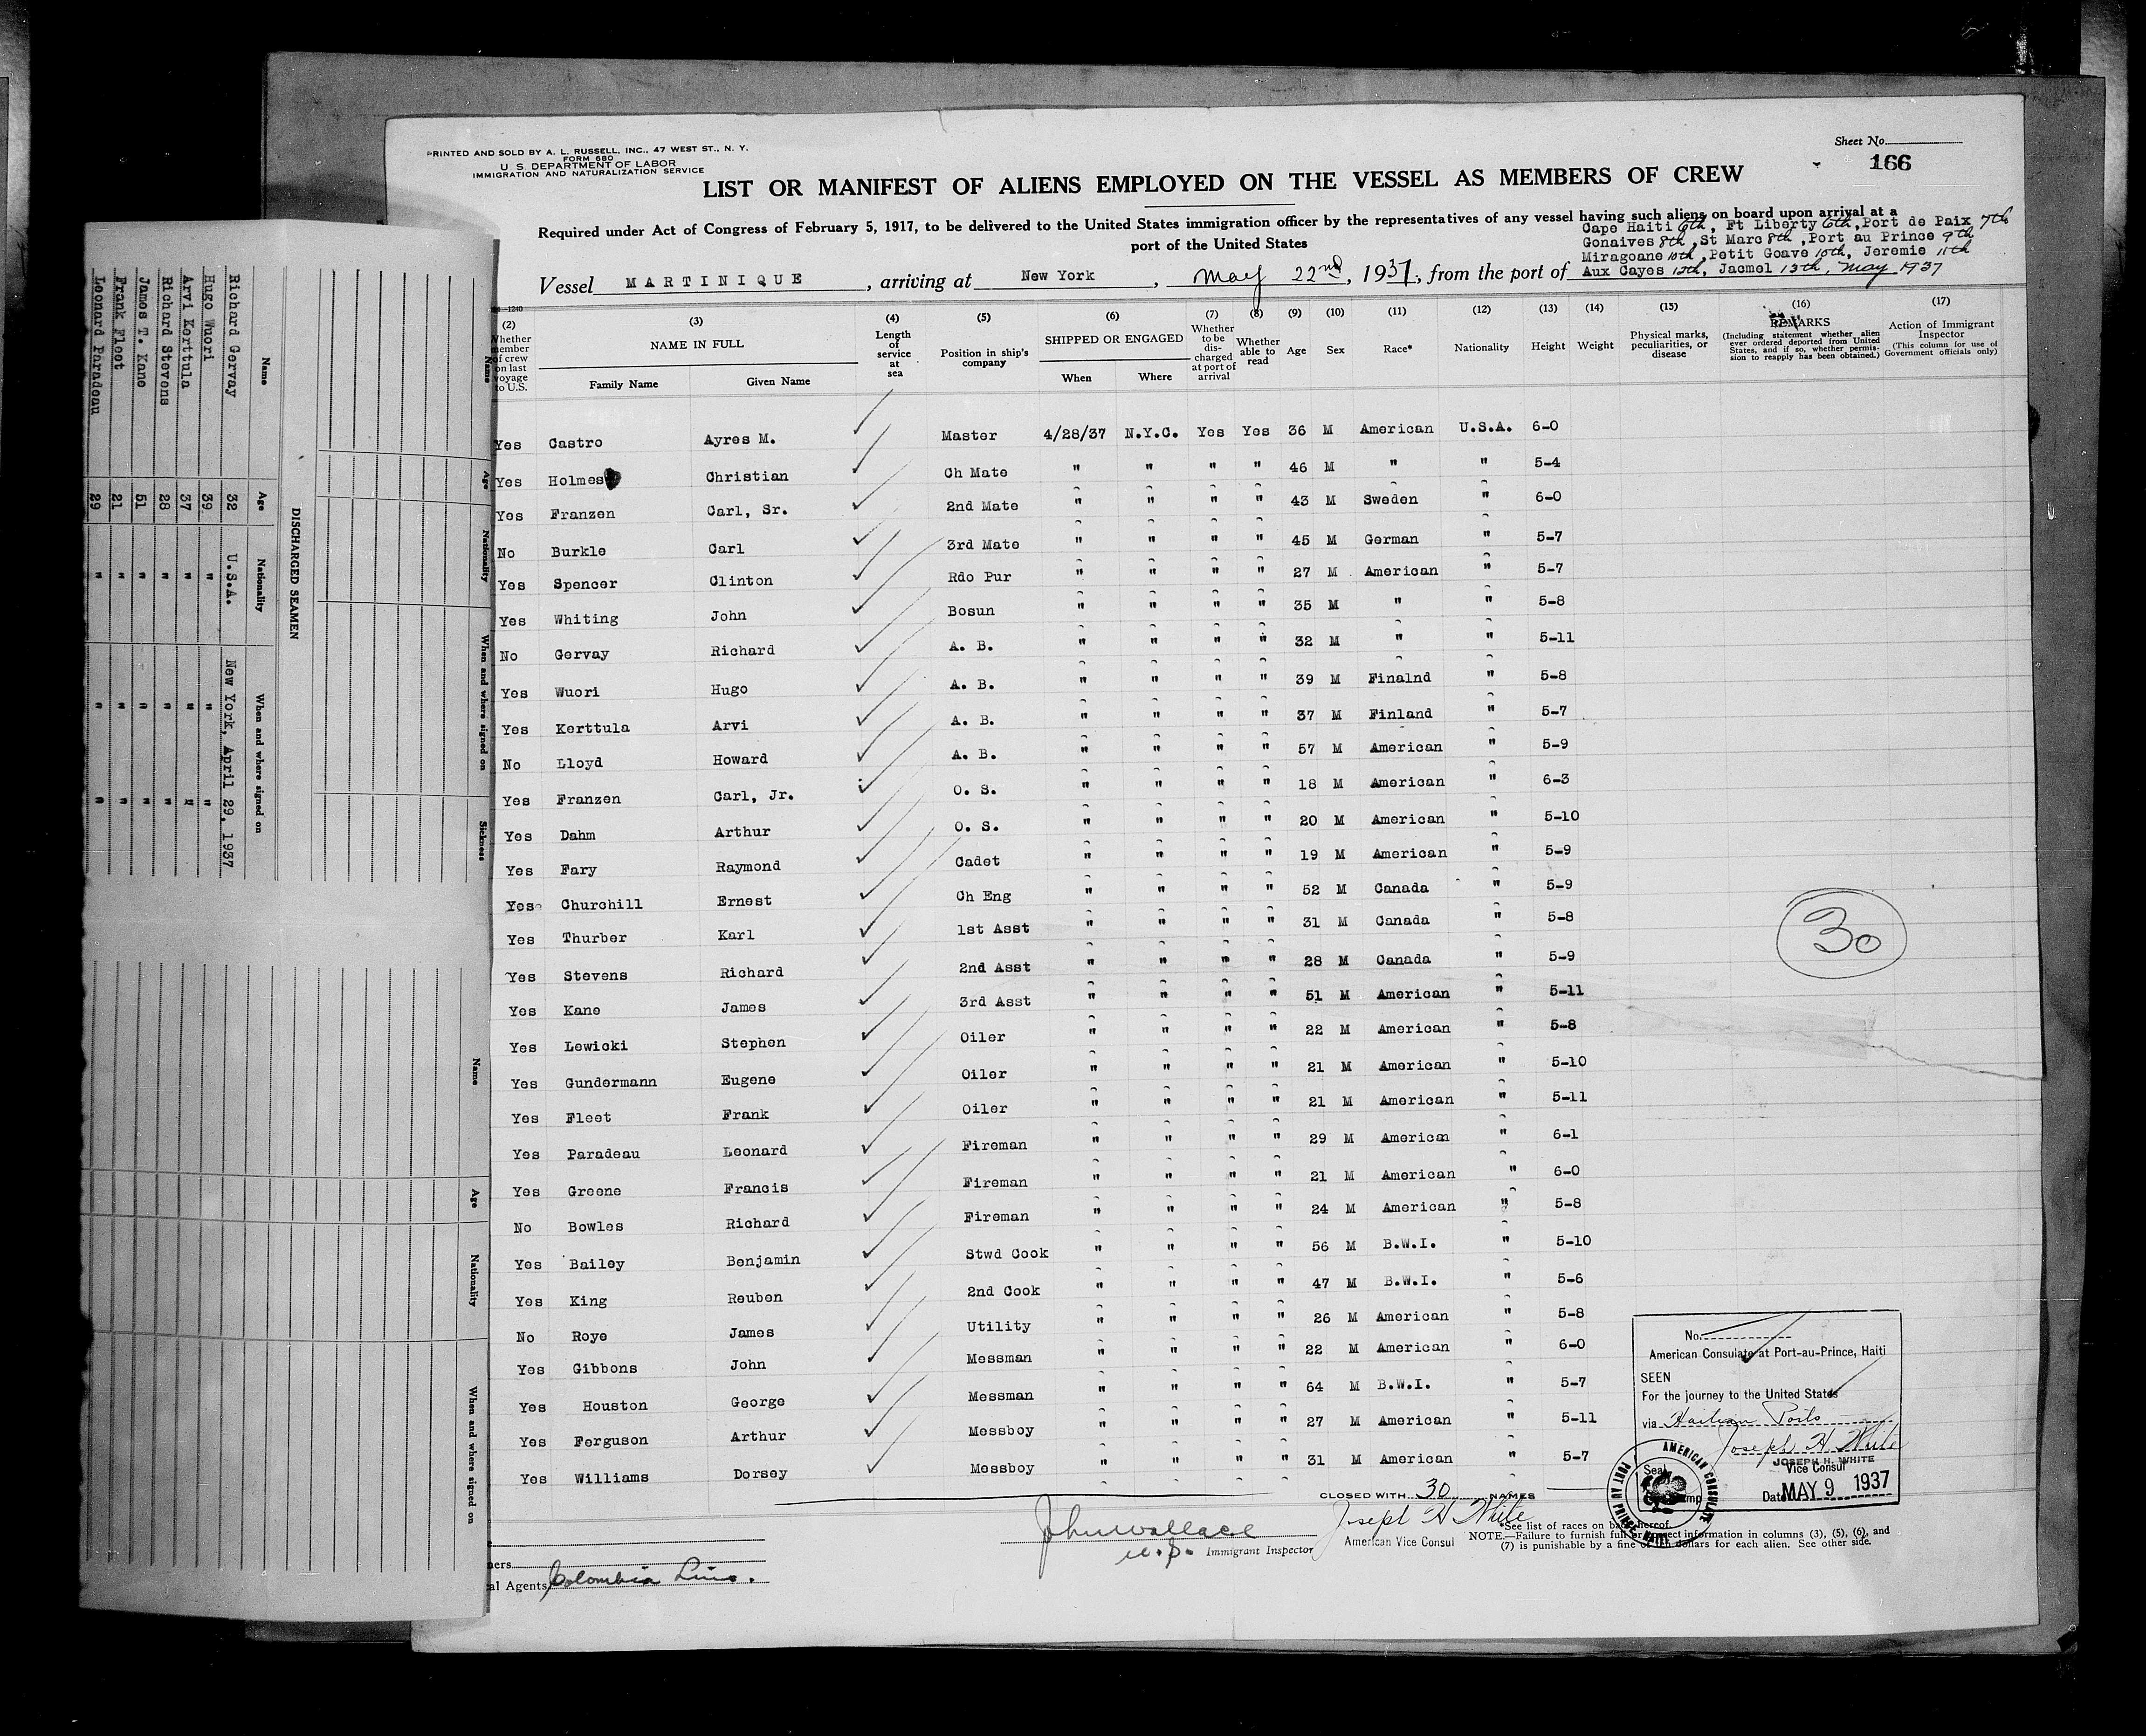 PRINTED AND SOLD BY A. L. RUSSELL, INC., 47 WEST ST., N. Y.
FORM 680
U. S. DEPARTMENT OF LABOR
IMMIGRATION AND NATURALIZATION SERVICE
Sheet No.
166
LIST OR MANIFEST OF ALIENS EMPLOYED ON THE VESSEL AS MEMBERS OF CREW
Required under Act of Congress of February 5, 1917, to be delivered to the United States immigration officer by the representatives of any vessel having such aliens on board upon arrival at a
port of the United States
Cape Haiti 6th, Ft Liberty 6th, Port de Paix 7th
Gonaives 8th, St Marc 8th, Port au Prince 9th
Miragoane 10th, Petit Goave 10th, Jeremie 11th
Vessel MARTINIQUE, arriving at New York, May 22nd, 1937, from the port of Aux Cayes 12th, Jacmel 13th, May 1937
(2) Whether member of crew on last voyage to U.S.
(3) NAME IN FULL Family Name Given Name
(4) Length of service at sea
(5) Position in ship's company
(6) SHIPPED OR ENGAGED When Where
(7) Whether to be discharged at port of arrival
(8) Whether able to read
(9) Age
(10) Sex
(11) Race*
(12) Nationality
(13) Height
(14) Weight
(15) Physical marks, peculiarities, or disease
(16) REMARKS (Including statement whether alien ever ordered deported from United States, and if so, whether permission to reapply has been obtained.)
(17) Action of Immigrant Inspector (This column for use of Government officials only)
Yes Castro Ayres M. Master 4/28/37 N.Y.C. Yes Yes 36 M American U.S.A. 6-0
Yes Holmes Christian Ch Mate " " " " 46 M " " 5-4
Yes Franzen Carl, Sr. 2nd Mate " " " " 43 M Sweden " 6-0
No Burkle Carl 3rd Mate " " " " 45 M German " 5-7
Yes Spencer Clinton Rdo Pur " " " " 27 M American " 5-7
Yes Whiting John Bosun " " " " 35 M " " 5-8
No Gervay Richard A. B. " " " " 32 M " " 5-11
Yes Wuori Hugo A. B. " " " " 39 M Finalnd " 5-8
Yes Kerttula Arvi A. B. " " " " 37 M Finland " 5-7
No Lloyd Howard A. B. " " " " 57 M American " 5-9
Yes Franzen Carl, Jr. O. S. " " " " 18 M American " 6-3
Yes Dahm Arthur O. S. " " " " 20 M American " 5-10
Yes Fary Raymond Cadet " " " " 19 M American " 5-9
Yes Churchill Ernest Ch Eng " " " " 52 M Canada " 5-9
Yes Thurber Karl 1st Asst " " " " 31 M Canada " 5-8
Yes Stevens Richard 2nd Asst " " " " 28 M Canada " 5-9
Yes Kane James 3rd Asst " " " " 51 M American " 5-11
Yes Lewicki Stephen Oiler " " " " 22 M American " 5-8
Yes Gundermann Eugene Oiler " " " " 21 M American " 5-10
Yes Fleet Frank Oiler " " " " 21 M American " 5-11
Yes Paradeau Leonard Fireman " " " " 29 M American " 6-1
Yes Greene Francis Fireman " " " " 21 M American " 6-0
No Bowles Richard Fireman " " " " 24 M American " 5-8
Yes Bailey Benjamin Stwd Cook " " " " 56 M B.W.I. " 5-10
Yes King Reuben 2nd Cook " " " " 47 M B.W.I. " 5-6
No Roye James Utility " " " " 26 M American " 5-8
Yes Gibbons John Messman " " " " 22 M American " 6-0
Yes Houston George Messman " " " " 64 M B.W.I. " 5-7
Yes Ferguson Arthur Messboy " " " " 27 M American " 5-11
Yes Williams Dorsey Messboy " " " " 31 M American " 5-7
30
No.
American Consulate at Port-au-Prince, Haiti
SEEN
For the journey to the United States
via Haitian Ports
Joseph H White
JOSEPH H. WHITE
Vice Consul
Seal
Date MAY 9 1937
AMERICAN CONSULATE
PORT AU PRINCE, HAITI
CLOSED WITH 30 NAMES
John Wallace
U.S. Immigrant Inspector
Joseph H White
American Vice Consul
*See list of races on back hereof.
NOTE.—Failure to furnish full or correct information in columns (3), (5), (6), and
(7) is punishable by a fine of ten dollars for each alien. See other side.
al Agents Colombia Line.
DISCHARGED SEAMEN
Name Age Nationality When and where signed on
Richard Gervay 32 U.S.A. New York, April 29, 1937
Hugo Wuori 39 " " "
Arvi Kerttula 37 " " "
Richard Stevens 28 " " "
James T. Kane 51 " " "
Frank Fleet 21 " " "
Leonard Paradeau 29 " " "
Name Age Nationality When and where signed on Sickness
Name Age Nationality When and where signed on